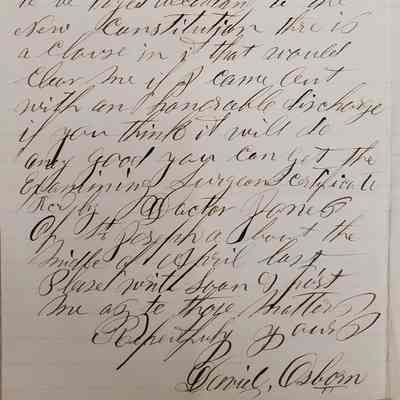 New Constitution thre is
a clause in it that would
clear me if I came out
with an honorable discharge
if you think it will do
any good you can get the
Examining Surgeon Certificate
by Doctor Jones
Of St Joseph about the
midle of April last
Please write soon & post
me as to those matters
Respectfuly yours
Daniel, Osborn